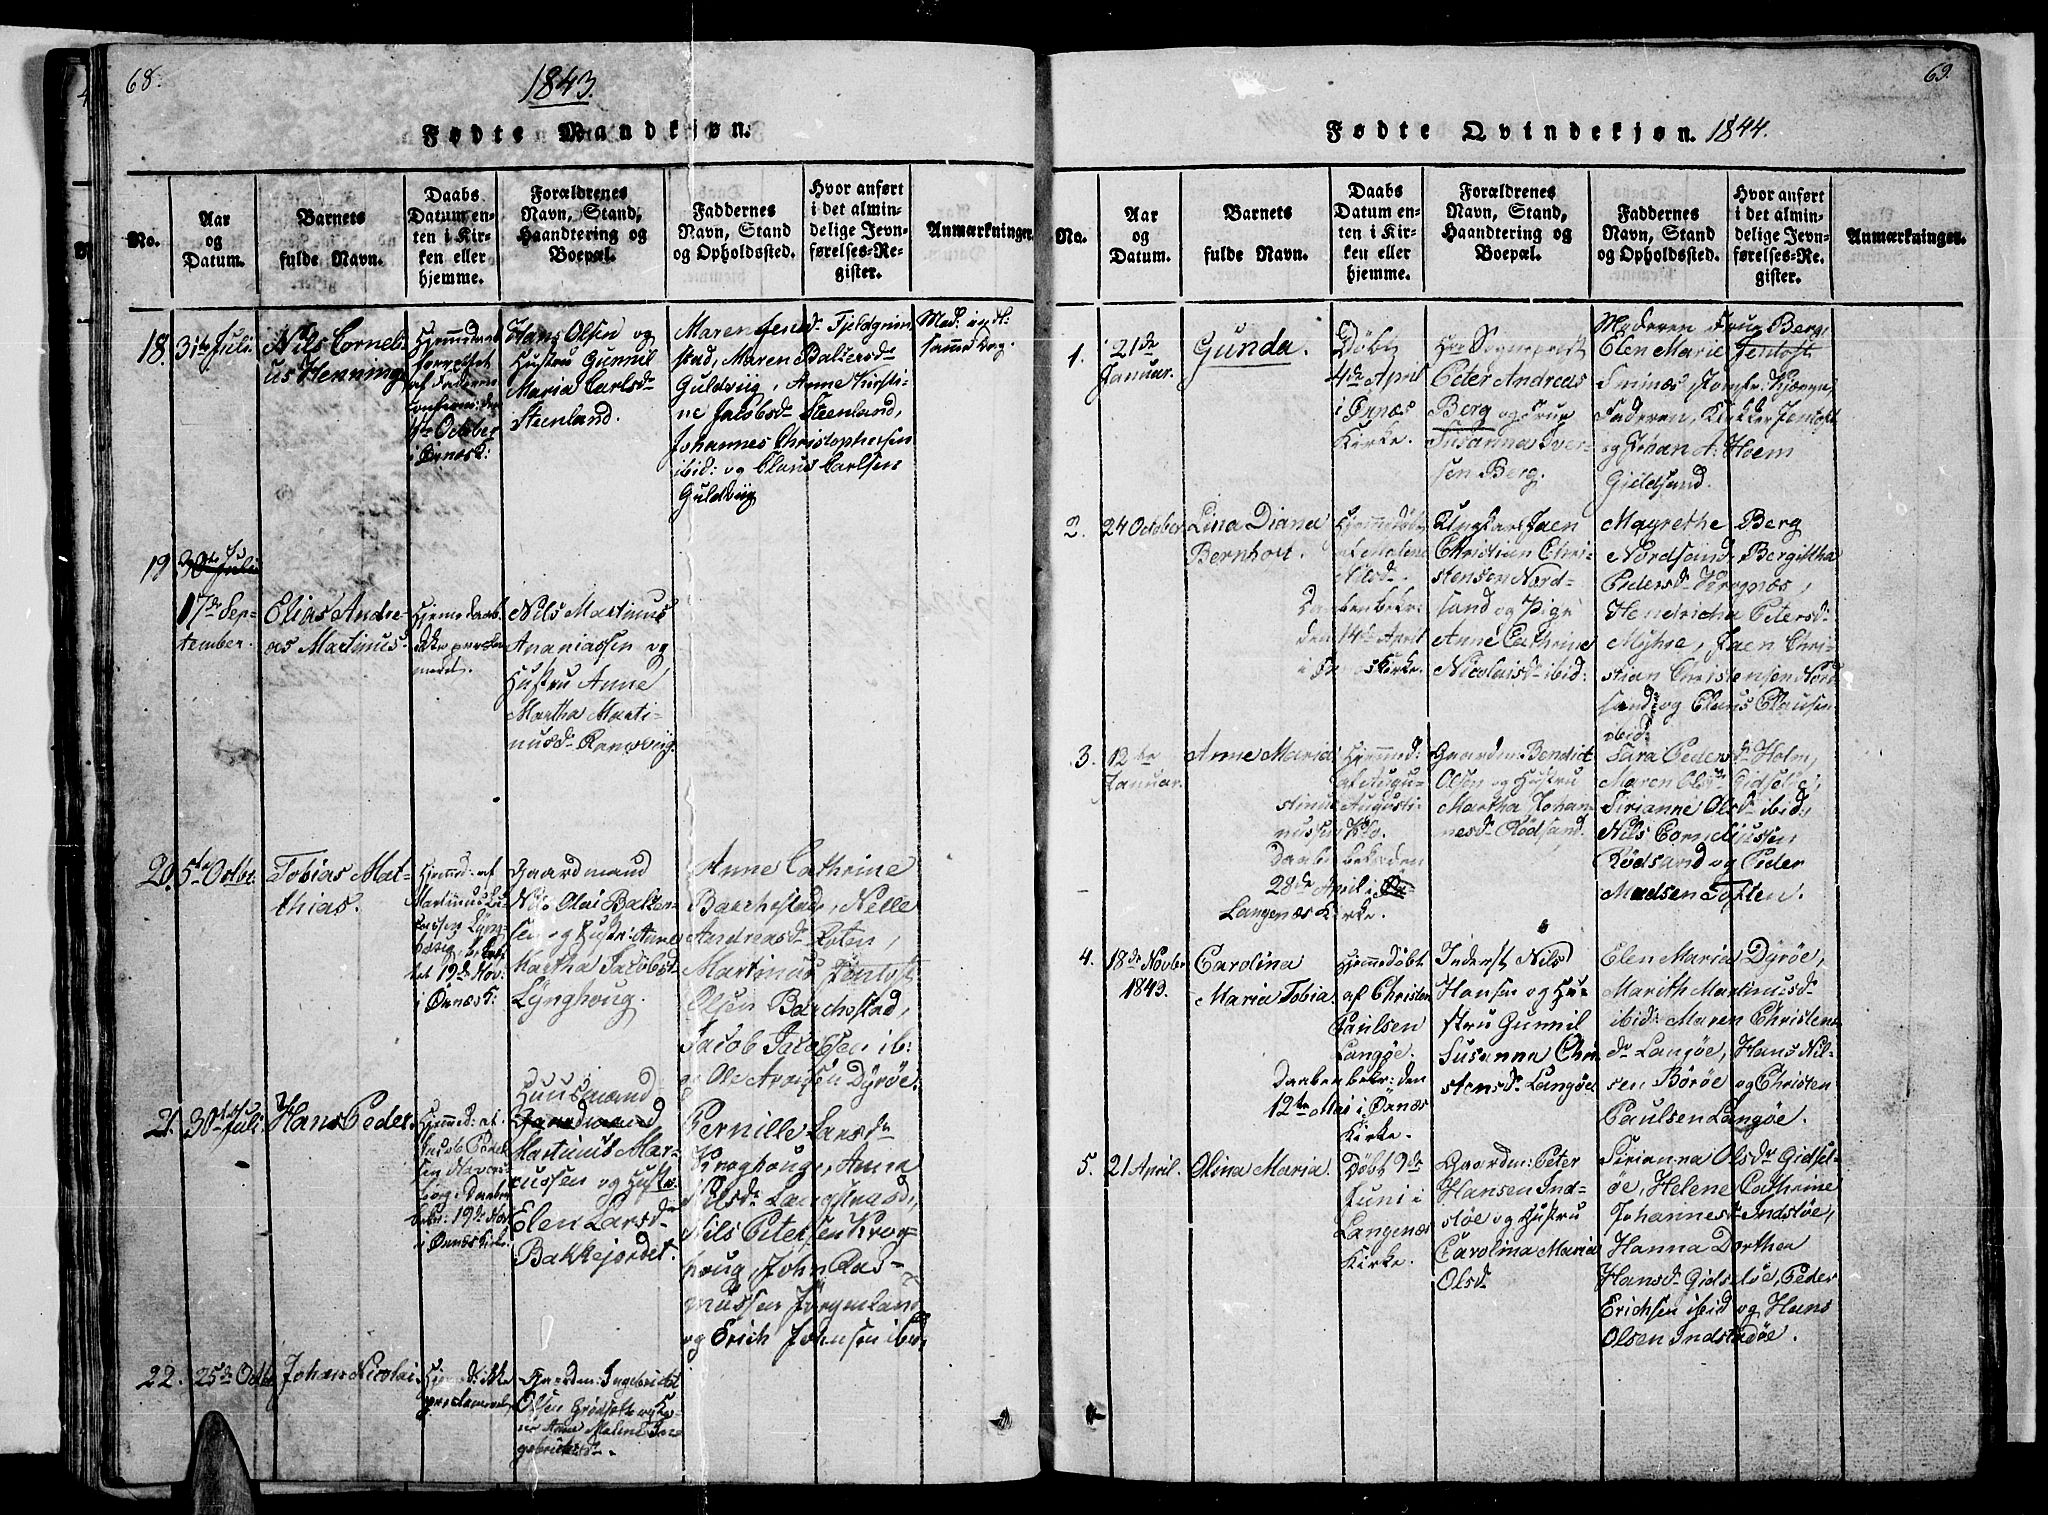 68.
1843.
Fødte Mandkjøn.
No.
Aar
og
Datum.
Barnets
fulde Navn.
Daabs
Datum en-
ten i Kir-
ken eller
hjemme.
Forældrenes
Navn, Stand,
Haandtering og
Boepæl.
Faddernes
Navn, Stand
og Opholdssted.
Hvor anført
i det almin-
delige Jevn-
førelses-Re-
gister.
Anmærkninger.
18.
31te Juli.
Nils Corneli-
us Henning
Hjemmedøbt
af Faderen
4de October
i Ørnæs K:
Hans Olsen og
Hustru Gunnil
Maria Carlsd.
Steenland.
Maren Jensd. Fjeldgrim
stad, Maren Baltzersd.
Guldvig, Anne Kirsti-
ne Jacobsd. Steenland,
Johannes Christophersen
ibid: og Claus Carlsen
Guldviig
samme Dag.
19.
30te Juli
17de Sep-
tember.
Elias Andre-
as Martinus.
Hjemmedaab
ikke procla-
meret.
Nils Martinus
Ananiassen og
Hustru Anne
Martha Marti-
nusd. Ramsviig.
20.
5te Octbr.
Tobias Mat-
thias.
Hjemmed: af
Martinus
19de Nov:
i Ørnæs K:
Gaardmand
Nils Olai Baltzer-
sen og Hustr: Anne
Martha Jacobsd.
Lynghoug.
Anne Cathrine
Barchestad, Nelle
Andreasd. Roten,
Martinus Jentoft
Olsen Barchestad,
Jacob Jacobsen ib:
og Ole Aronsen Dyrøe.
21.
30te Juli.
Hans Peder.
Hjemmed: af
Jacob Peder-
sen
bekr: 19de Nov
i Ørnæs Kirke.
Huusmand
Gaardmand
Martinus Mar-
cussen og Hustr.
Elen Larsd.
Bakkejordet.
Pernille Larsd.
Kroghoug, Anne
Olsd. Langstrand,
Nils Petersen Krog-
houg, John Ras-
mussen Jørgenland
og Erich Johnsen ibid.
22.
25de Octbr
Johan Nicolai.
Hjemmed: ikke
proclameret
Gaardm: Ingebrigt
Olsen Grødset og Ko-
ne Anne Malene In-
gebrictsd.
69.
Fødte Qvindekjøn. 1844.
No.
Aar
og
Datum.
Barnets
fulde Navn.
Daabs
Datum en-
ten i Kir-
ken eller
hjemme.
Forældrenes
Navn, Stand,
Haandtering og
Boepæl.
Faddernes
Navn, Stand
og Opholdssted.
Hvor anført
i det almin-
delige Jevn-
førelses-Re-
gister.
Anmærkninger.
1.
21de
Januar.
Gunda.
Døbt
4de April
i Ørnæs
Kirke.
Hr. Sognepræst
Peter Andreas
Berg og Frue
Susanna Iver-
sen Berg.
Moderen Frue Berg,
Elen Marie Jentoft
Faderen, Kirkesr. Jentoft
og Johan A. Hoem
Gieldsand.
2.
24 October
Lina Diana
Bernhoft.
Hjemmedøbt
af Malene
Nilsd.
Daaben bekr.
den 14de April
i Ør s Kirke.
Ungkarl Jaen
Christian Chri-
stensen Nord-
sand og Pige
Anne Cathrine
Nicolaisd. ibid:
Magrethe Berg
Nordsand, Bergittha
Pedersd. Krognæs,
Hendricha Petersd.
Myhre, Jaen Chri-
stian Christensen Nord
sand og Claus Clausen
ibid:
3.
12te
Januar.
Anne Maria
Hjemmed:
af Augu-
stinus Augusti-
nussen Klo.
Daaben bekr. den
28de April i
Langenæs Kirke.
Gaardm: Bendict
Olsen og Hustru
Martha Johan-
nesd. Rødsand.
Sara Pedersd. Holm,
Maren Olsd. Gidsøe,
Sirianne Olsd. ibid:,
Nils Corneliussen
Rødsand og Peder
Madsen Toften.
4.
18de Novbr
1843.
Carolina
Maria Tobia.
Hjemmedøbt
af Christen
Paulsen
Langøe.
Daaben bekr: den
12te Mai i Ørnæs
Kirke.
Inderst Nils
Hansen og Hu-
stru Gunnil
Susanna Chri
stensd. Langøe
Elen Maria Dyrøe,
Marith Martinusd.
ibid: Maren Christens
d. Langøe, Hans Nil-
sen Børøe og Christen
Paulsen Langøe.
5.
21 April.
Olina Maria.
Døbt 9de
Juni i
Langenæs
Kirke.
Gaardm: Peter
Hansen Ind-
støe og Hustru
Carolina Maria
Olsd.
Sirianna Olsd. Gidsel-
øe, Helene Cathrine
Johannesd. Indstøe,
Hanna Dorthea
Hansd. Gidsløe, Peder
Erichsen ibid og Hans
Olsen Indstadøe.